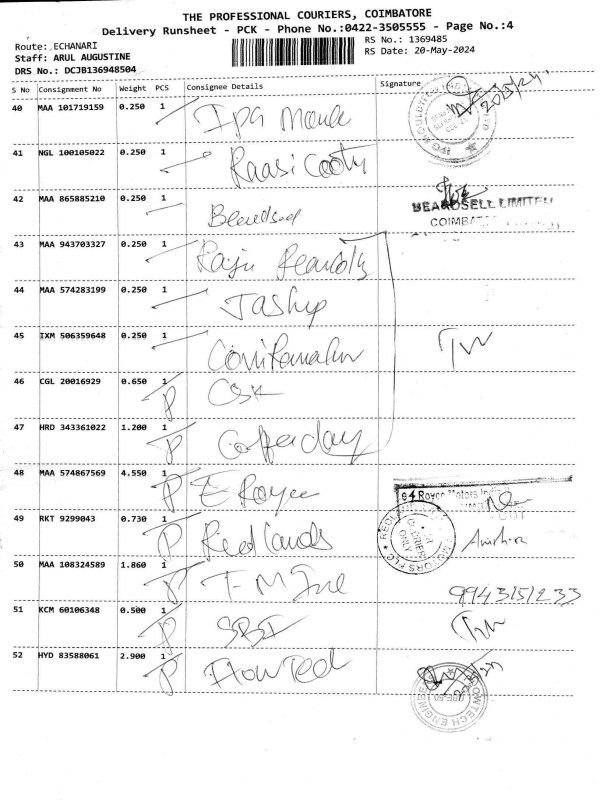 THE PROFESSIONAL COURIERS, COIMBATORE
Delivery Runsheet - PCK - Phone No.:0422-3505555 - Page No.:4
Route: ECHANARI RS No.: 1369485
Staff: ARUL AUGUSTINE RS Date: 20-May-2024
DRS No.: DCJB136948504
S No Consignment No Weight PCS Consignee Details Signature
40 MAA 101719159 0.250 1 Ipa
41 NGL 100105022 0.250 1 Raasi
42 MAA 865885210 0.250 1 BEARDSELL LIMITED
COIMBA
43 MAA 943703327 0.250 1 Raju
44 MAA 574283199 0.250 1
45 IXM 506359648 0.250 1
46 CGL 20016929 0.650 1 P
47 HRD 343361022 1.200 1 P Coffee day
48 MAA 574867569 4.550 1 P E Royce Royce Motors India
49 RKT 9299043 0.730 1 P Redlands MOTORS PLC
50 MAA 108324589 1.860 1 P 9943151233
51 KCM 60106348 0.500 1 P SBI
52 HYD 83588061 2.900 1 P FlowTech
FLOWTECH ENGINEE